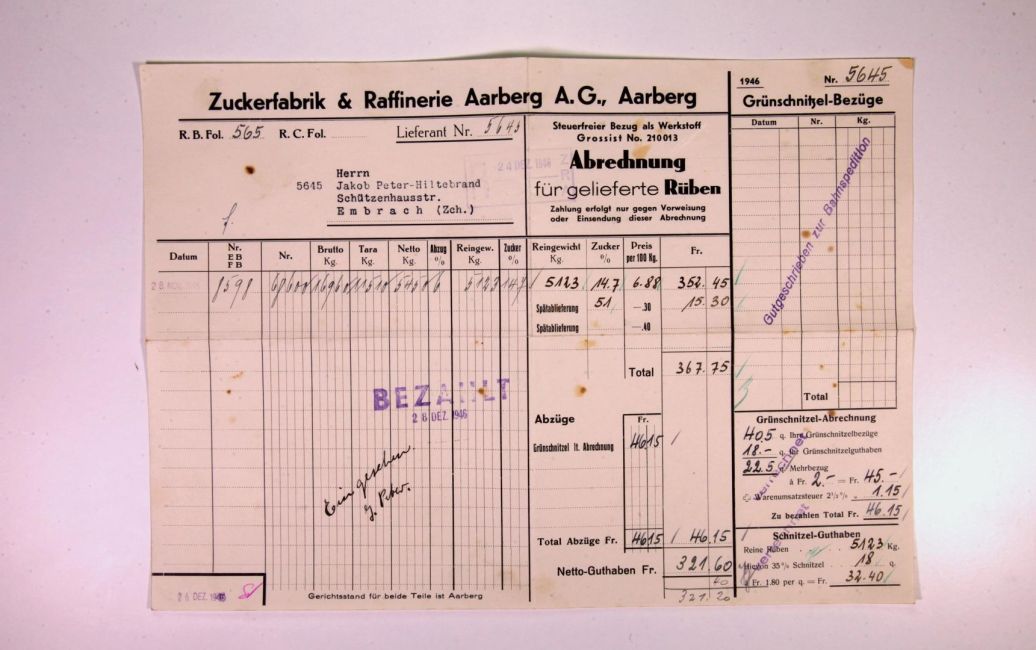 Zuckerfabrik & Raffinerie Aarberg A.G., Aarberg
R. B. Fol. 565 R. C. Fol.
Lieferant Nr. 5645
Herrn
5645 Jakob Peter-Hiltebrand
Schützenhausstr.
Embrach (Zch.)
Steuerfreier Bezug als Werkstoff
Grossist No. 210013
Abrechnung
für gelieferte Rüben
Zahlung erfolgt nur gegen Vorweisung
oder Einsendung dieser Abrechnung
24 DEZ. 1946
Datum Nr. EB FB Nr. Brutto Kg. Tara Kg. Netto Kg. Abzug % Reingew. Kg. Zucker %
8598 68600 16960 11510 5450 6 5123 14,7
Reingewicht Kg. Zucker % Preis per 100 Kg. Fr.
5123 14.7 6.88 352.45
Spätablieferung 51 —.30 15.30
Spätablieferung —.40
Total 367.75
BEZAHLT
28 DEZ. 1946
Eingesehen.
J. Peter.
Abzüge Fr.
Grünschnitzel lt. Abrechnung 46 15
Total Abzüge Fr. 46 15 46.15
Netto-Guthaben Fr. 321.60
40
321.20
26 DEZ. 1946
Gerichtsstand für beide Teile ist Aarberg
1946 Nr. 5645
Grünschnitzel-Bezüge
Datum Nr. Kg.
Gutgeschrieben zur Bahnspedition
Total
Grünschnitzel-Abrechnung
40.5 q Ihre Grünschnitzelbezüge
18.- q Ihr Grünschnitzelguthaben
22.5 q Mehrbezug
à Fr. 2.- = Fr. 45.-
Warenumsatzsteuer 2½% „ 1.15
Zu bezahlen Total Fr. 46.15
Schnitzel-Guthaben
Reine Rüben 5123 Kg.
Hievon 35% Schnitzel 18 q
à Fr. 1.80 per q = Fr. 32.40